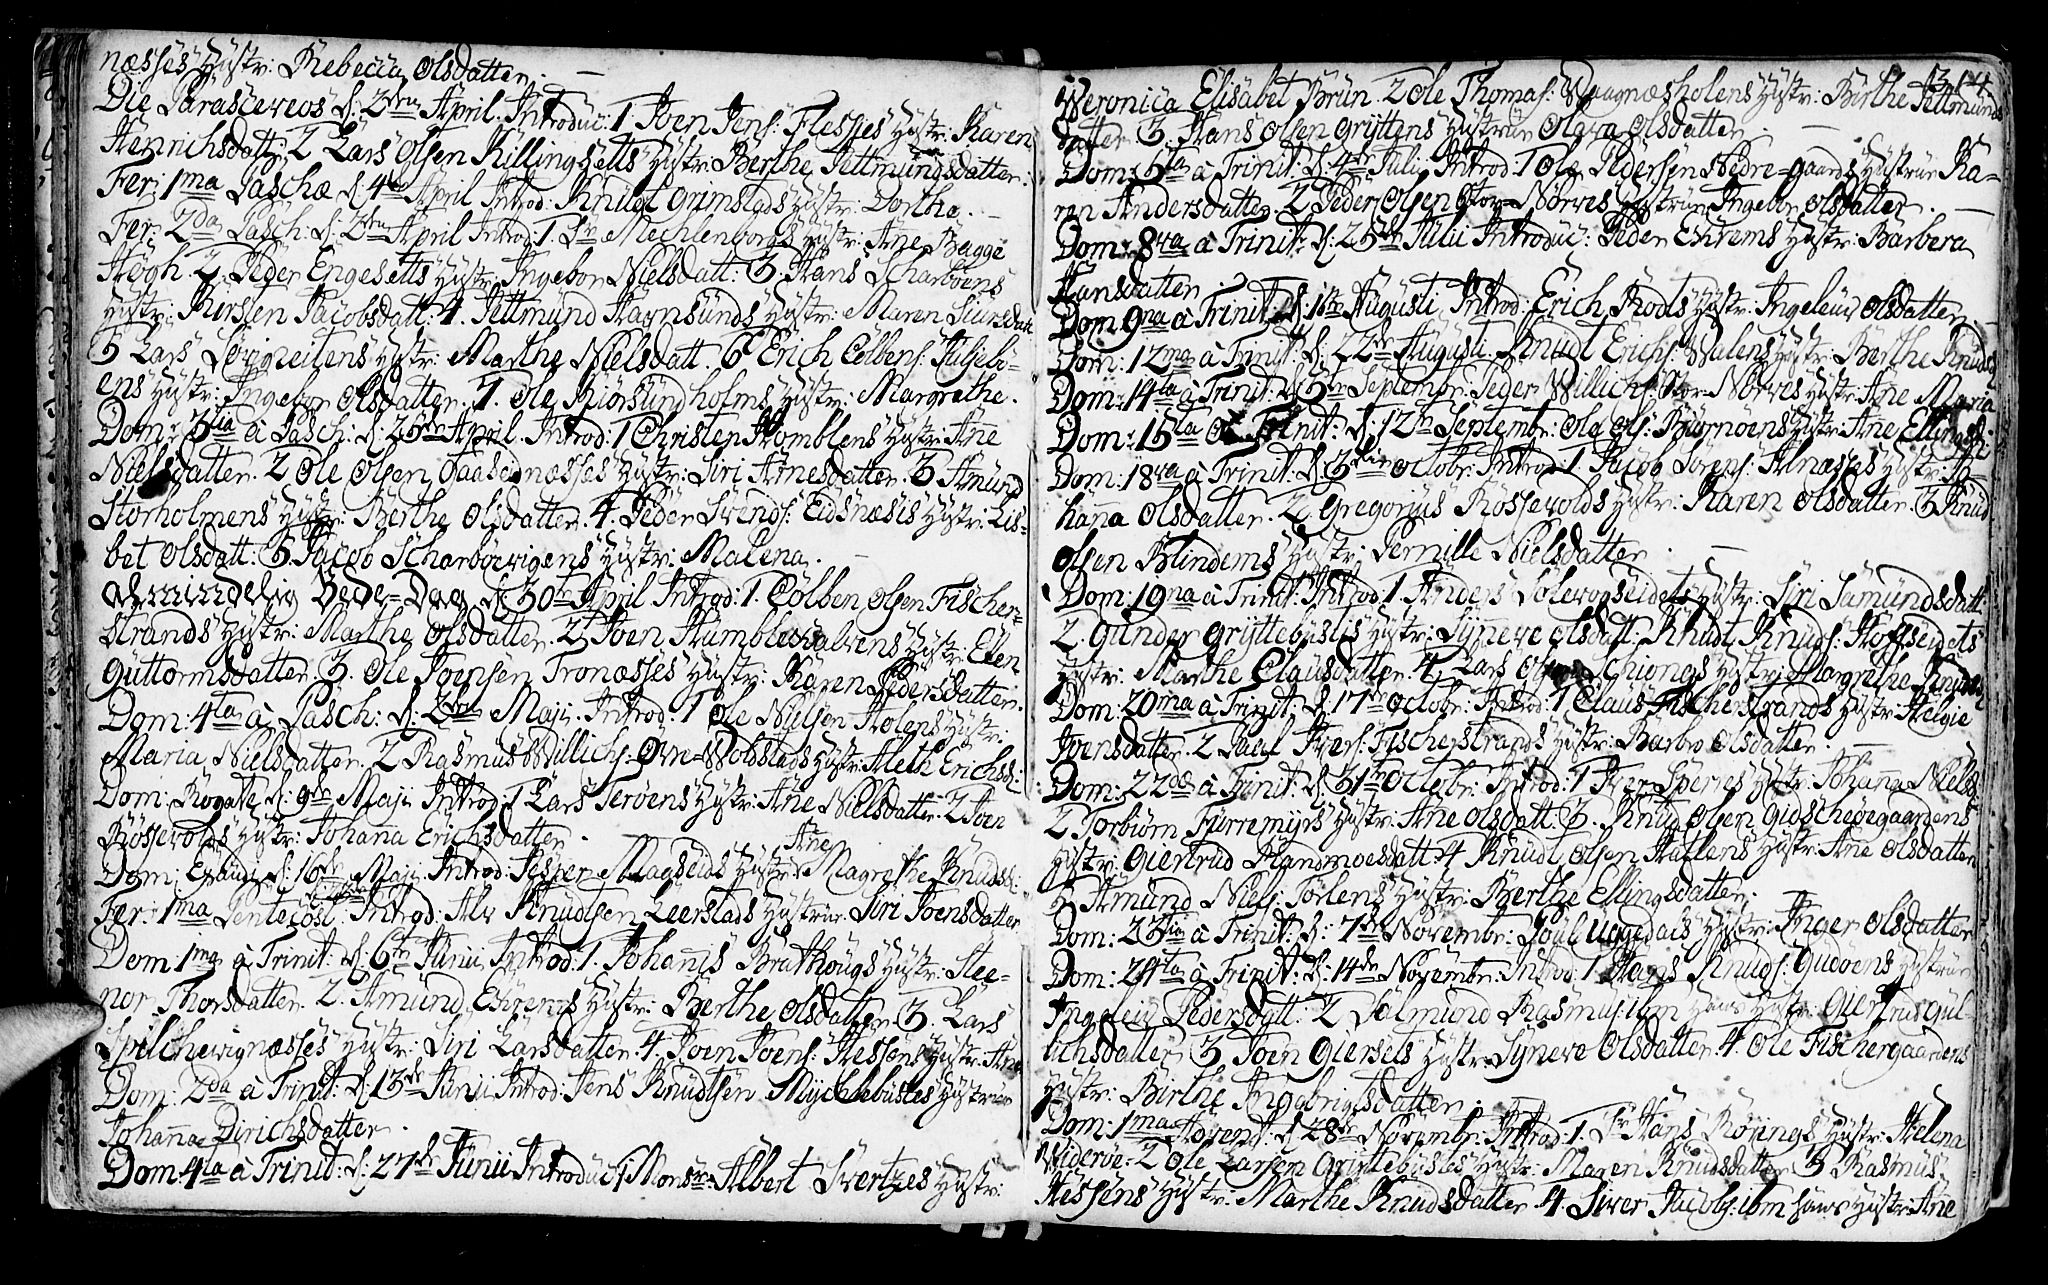 næsses Hüstr: Rebecca Olsdatter. —
Die Parasceveos d: 2den April. Introduc: 1. Joen Jens: Flessies Hüstr: Karen
Henrichsdatt: 2 Lars Olsen Killingsetts Hüstr: Berthe Jettmundsdatter.
Fer: 1ma Paschæ d: 4de April Introd: Knüdt Grimstads Hüstr: Dorthe. —
Fer: 2da Pasch: d: April Introd: 1. Sr Mechlenborgs Hüstr: Ane Bagge
Høgh 2. Peder Engesetts Hüstr: Ingebor Nielsdatt: 3. Hans Scharbøens
Hüstr: Kirsten Jacobsdatt: 4. Jettmünd Hagnsünds Hüstr: Maren Siursdatt
5 Lars Hüstr: Marthe Nielsdatt. 6 Erich Colbens: Julsebø-
ens Hüstr: Ingebor Olsdatter. 7. Ole Biørsündholms Hüstr: Margrethe.
Dom: 3tia à Pasch: d: 25de April. Introd: 1 Christen Homblens Hüstr: Ane
Nielsdatter. 2 Ole Olsen Hüstr: Siri Arnesdatter. 3 Amünd
Storholmens Hüstr: Berthe Olsdatter. 4. Peder Svends: Eidsnæsis Hüstr: Lis-
bet Olsdatt: 5. Jacob Scharbøevigens Hüstr: Malena. —
Almindelig Bede-Dag d 30te April Introd: 1. Colben Olsen Fischer-
strands Hüstr: Marthe Olsdatter. 2. Joen Hümblesdalvens Hüstr: Elen
Güttormsdatter. 3. Ole Joensen Tronæsses Hüstr: Karen Pedersdatter.
Dom: 4ta à Pasch: d: 2den Maji. Introd: 1 Ole Nielsen Holens Hüstr:
Maria Nielsdatter. 2 Rasmus Willichs: Øvre-Wobstads Hüstr: Aleth Erichsd:
Dom: Rogate d: 9de Maji Introd: 1 Lars Terøens Hüstr: Ane Nielsdatter. 2 Joen
Røssevolds Hüstr: Johana Erichsdatter.
Dom: Exaudi d: 16de Maji Introd: Jesper Magseids Hüstr: Ane Magrethe Knüdsd:
Fer: 1ma Pentecost: Introd: Alv Knudtsen Leerstads Hüstrue Siri Joensdatter
Dom: 1ma à Trinit: d: 6te Junii Introd: 1. Johanis Brathougs Hüstr: Slee-
nor Thorsdatter. 2. Amünd Ehrems Hüstr: Berthe Olsdatter. 3. Lars
Spilchevignæsses Hüstr: Siri Larsdatter. 4. Joen Joens: Hessens Hüstr: Ane
Dom: 2da à Trinit: d: 13de Junii Introd: Jens Knudtsen Mychlebüstes Hüstrue
Johanna Dirichsdatter.
Dom: 4ta à Trinit: d: 27de Junii Introduc: 1 Monsr Albert Svertzes Hüstr:
13 14.
Veronica Elisabet Brün. 2 Ole Thomas: Waagnæsholens Hüstr: Birthe Jettmunds-
datter. 3. Hans Olsen Gryttens Hüstrue Olava Olsdatter. —
Dom: 5ta à Trinit: d: 4de Julii Introd: 1 Ole Pedersen Nedre-gaards Hüstrue Ka-
ren Andersdatter. 2 Peder Olsen Stor-Nørves Hüstrue Ingebor Olsdatter. —
Dom: 8va à Trinit: d: 25de Julii Introduc: Peder Ehrems Hüstr: Barbera
Hansdatter.
Dom: 9na à Trinit: d: 1ste Augusti Introd: Erich Rods Hüstr: Ingeleiv Olsdatter.
Dom: 12ma à Trinit: d: 22de Augusti Knudt Erichs: Walens Hüstr: Berthe Knudsd:
Dom: 14ta à Trinit: d: 5te Septembr: Peder Willichs: Stor-Nørves Hüstr: Ane Maria
Dom: 15ta à Trinit: d: 12te Septembr: Ole Ols: Biørnøens Hüstr: Ane Ellingsd:
Dom: 18va à Trinit: d: 3die Octobr: Introd: 1. Jacob Lorens: Alnæsses Hüstr: Jo-
hanna Olsdatter. 2. Gregorius Rossevolds Hüstr: Karen Olsdatter. 3 Knüd
Olsen Blindems Hüstr: Pernille Nielsdatter. —
Dom: 19na à Trinit: Introd: 1 Anders Solevogseidets Hüstr: Siri Samundsdatt
2. Günder Gryttebüstes Hüstr: Synneve Olsdatt: Knudt Knuds: Hoffseidets
Hüstr: Marthe Clausdatter. 4. Lars Olsen Schiongs Hüstr: Margrethe Knudsd:
Dom: 20ma à Trinit: d: 17de Octobr: Introd: 1 Claus Fischerstrands Hüstr: Helgie
Joensdatter. 2 Paal Ivers: Fischerstrands Hüstr: Barbro Olsdatter. —
Dom: 22dæ à Trinit: d: 31te Octobr: Introd: 1 Iver Speries Hüstr: Johana Nielsd:
2 Torbiørn Furremyrs Hüstr: Ane Olsdatt: 3. Knud Olsen Gidschøegaardens
Hüstr: Giertrud Rasmusdatt: 4 Knudt Olsen Hatlens Hüstr: Ane Olsdatter
5 Amünd Niels: Torlens Hüstr: Berthe Ellingsdatter.
Dom: 23tia à Trinit: d: 7de Novembr: Poul Uggedals Hüstr: Inger Olsdatter
Dom: 24ta à Trinit: d: 14de Novembr: Introd: 1 Hans Knuds: Gudøens Hüstrue
Ingeleiv Pedersdatt: 2 Salmund Rasmus: ibm hans Hüstr: Giertrud Gul-
lichsdatter. 3. Joen Giersets Hüstr: Synneve Olsdatter. 4. Ole Fischergaardens
Hüstr: Birthe Ingebrigtsdatter.
Dom: 1ma Advent: d 28de Novembr: Introd: 1. Sr Hans Rønings Hüstr: Helena
Widerøe: 2 Ole Larsen Gryttebüstes Hüstr: Maren Knudsdatter. 3 Rasmus
Hessens Hüstr: Marthe Knudsdatter. 4. Siver Jacobs: ibm hans Hüstr: Ane